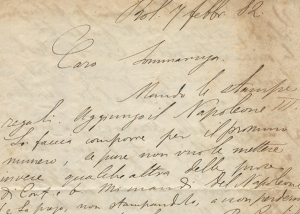 Bol. 7 febbr. 82.
Caro Sommaruga.
Mando le stampe
regali Aggiungo il Napoleone III
Lo faccia comporre per il prossimo
numero, se pure non vuole mettere
invece qualche altra delle prove
di Mi mandi del Napoleone
La prego, non stampandolo, a non perdere